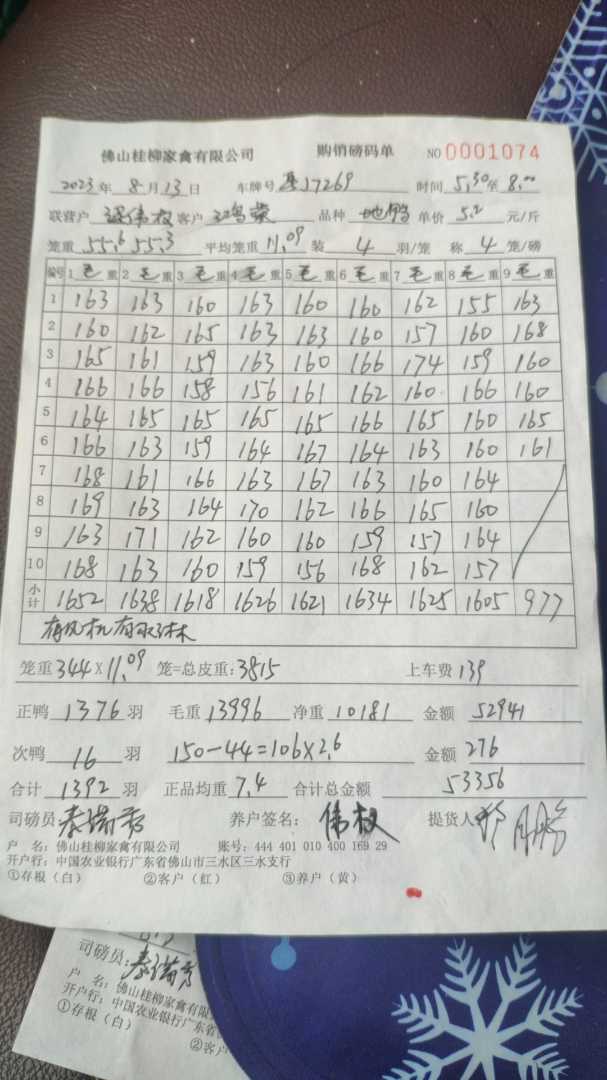 佛山桂柳家禽有限公司 购销磅码单 NO 0001074
2023年 8月13日 车牌号 17269 时间 5:30至 8:00
联营户 伟权 客户 鸿荣 品种 地鸭 单价 5.2 元/斤
笼重 55.6 55.3 平均笼重 11.09 装 4 羽/笼 称 4 笼/磅
编号 1毛重 2毛重 3毛重 4毛重 5毛重 6毛重 7毛重 8毛重 9毛重
1 163 163 160 163 160 160 162 155 163
2 160 162 165 163 163 160 157 160 168
3 165 161 159 163 160 166 174 159 160
4 166 166 158 156 161 162 160 166 160
5 164 165 165 165 165 166 165 160 165
6 166 163 159 164 167 164 163 160 161
7 168 161 166 163 167 163 160 164
8 169 163 164 170 162 166 165 160
9 163 171 162 160 160 159 157 164
10 168 163 160 159 156 168 162 157
小计 1652 1638 1618 1626 1621 1634 1625 1605 977
有风机有
笼重 344 X 11.09 笼=总皮重: 3815 上车费 139
正鸭 1376 羽 毛重 13996 净重 10181 金额 52941
次鸭 16 羽 150-44=106X2.6 金额 276
合计 1392 羽 正品均重 7.4 合计总金额 53356
司磅员 养户签名: 伟权 提货人
户 名: 佛山桂柳家禽有限公司 账号: 444 401 010 400 169 29
开户行: 中国农业银行广东省佛山市三水区三水支行
①存根（白） ②客户（红） ③养户（黄）
司磅员:
户 名: 佛山桂柳家禽有限
开户行: 中国农业银行广东省
①存根（白） ②客户